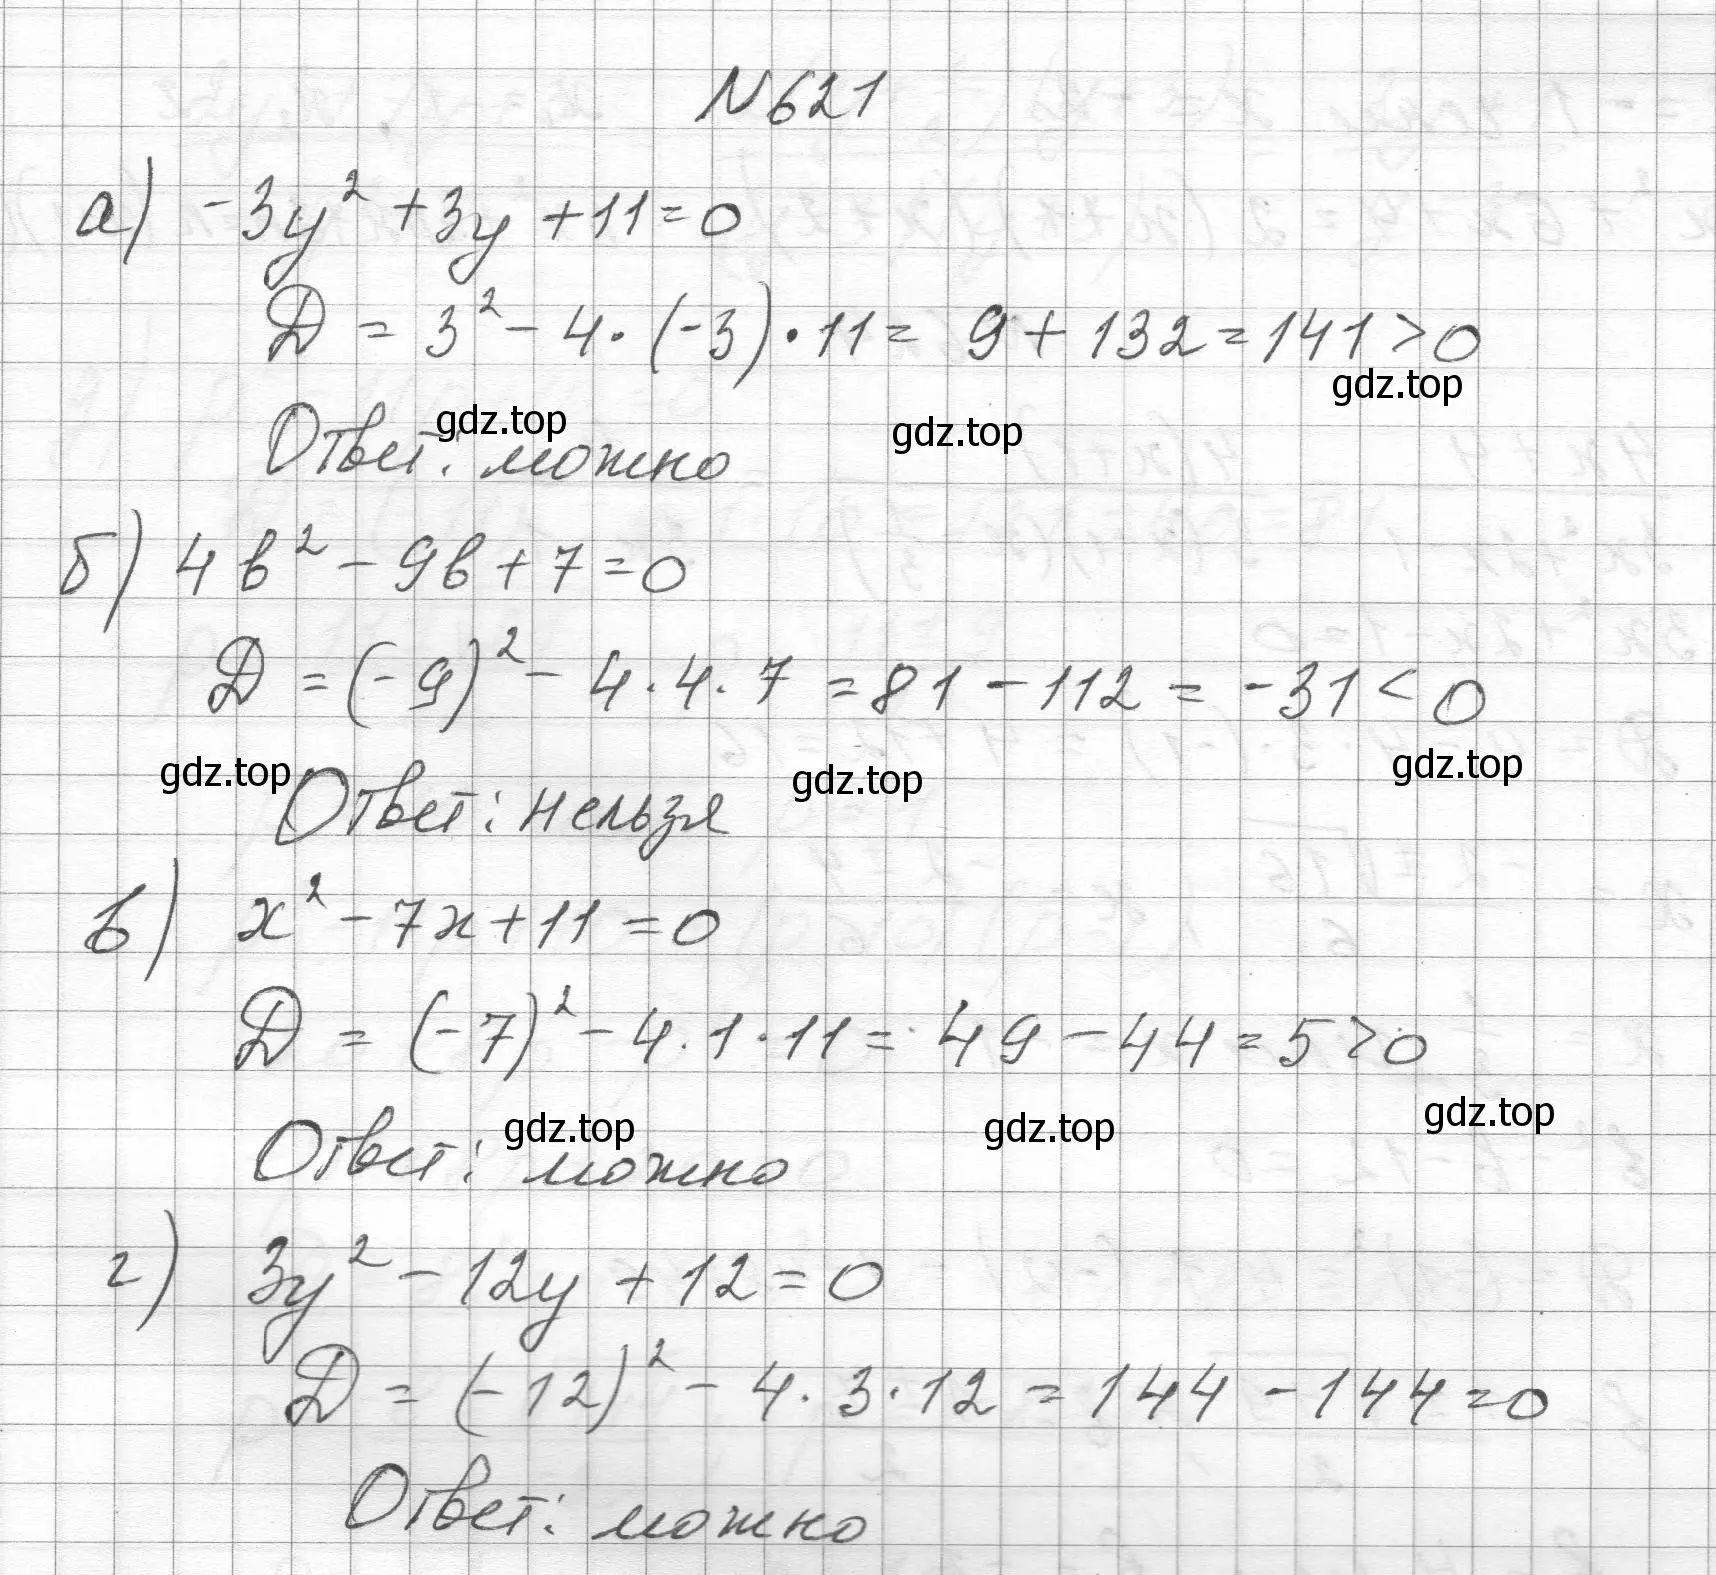 N 621
а) -3y² + 3y + 11 = 0
D = 3² - 4 · (-3) · 11 = 9 + 132 = 141 > 0
gdz.top
gdz.top gdz.top
Ответ: можно
б) 4b² - 9b + 7 = 0
D = (-9)² - 4 · 4 · 7 = 81 - 112 = -31 < 0
gdz.top gdz.top gdz.top
Ответ: нельзя
в) x² - 7x + 11 = 0
D = (-7)² - 4 · 1 · 11 = 49 - 44 = 5 > 0
gdz.top gdz.top gdz.top
Ответ: можно
г) 3y² - 12y + 12 = 0
D = (-12)² - 4 · 3 · 12 = 144 - 144 = 0
Ответ: можно